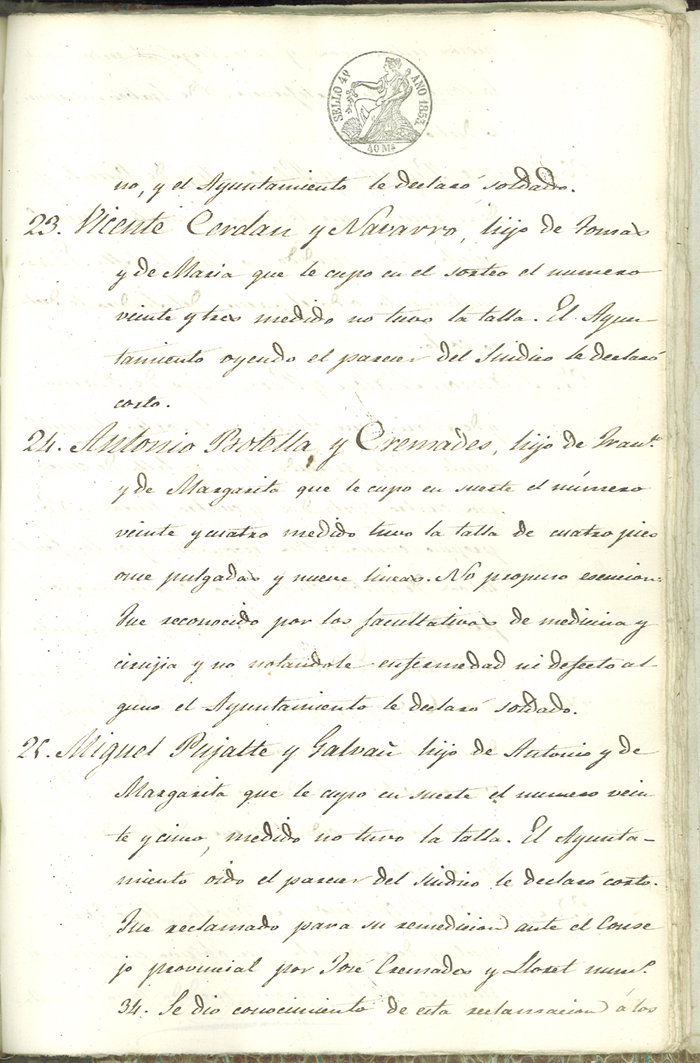 SELLO 4º AÑO 1857.
40 Ms
no, y el Ayuntamiento le declaró soldado.
23. Vicente Cerdan y Navarro, hijo de Tomas
y de Maria que le cupo en el sorteo el numero
veinte y tres medido no tuvo la talla. El Ayun-
tamiento oyendo el parecer del Sindico le declaró
corto.
24. Antonio Botella y Cremades, hijo de Fran.co
y de Margarita que le cupo en suerte el número
veinte y cuatro medido tuvo la talla de cuatro pies
once pulgadas y nueve lineas. No propuso esencion.
Fue reconocido por los facultativos de medicina y
cirujia y no notandole enfermedad ni defecto al
guno el Ayuntamiento le declaró soldado.
25. Miguel Pujalte y Galvañ hijo de Antonio y de
Margarita que le cupo en suerte el numero vein
te y cinco, medido no tuvo la talla. El Ayunta-
miento oido el parecer del sindico le declaró corto.
Fue reclamado para su remedicion ante el Conse
jo provincial por José Cremades y Lloret num.º
34. Se dio conocimiento de esta reclamacion á los